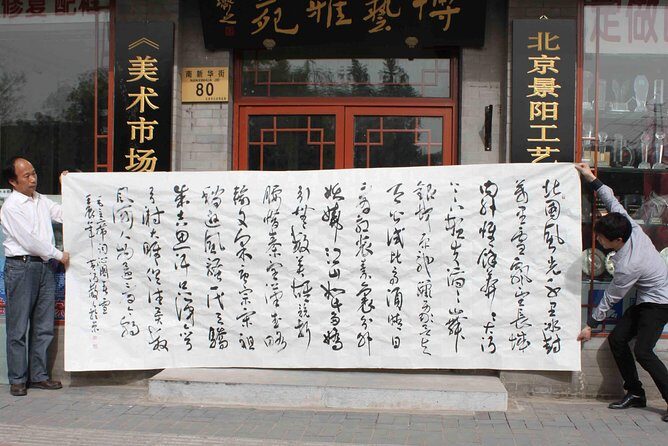 博藝雅苑
修复 配框
《美术市场
南新华街
80
北京景阳工艺
定做
北国风光千里冰封
万里雪飘望长城
内外惟余莽莽大河
上下顿失滔滔山舞
银蛇原驰蜡象欲与天
公试比高须晴日
看红装素裹分外
妖娆江山如此多娇
引无数英雄竞折
腰惜秦皇汉武略
输文采唐宗宋祖
稍逊风骚一代天骄
成吉思汗只识弯
弓射大雕俱往矣数
风流人物还看今朝
毛主席词沁园春雪
壬辰年